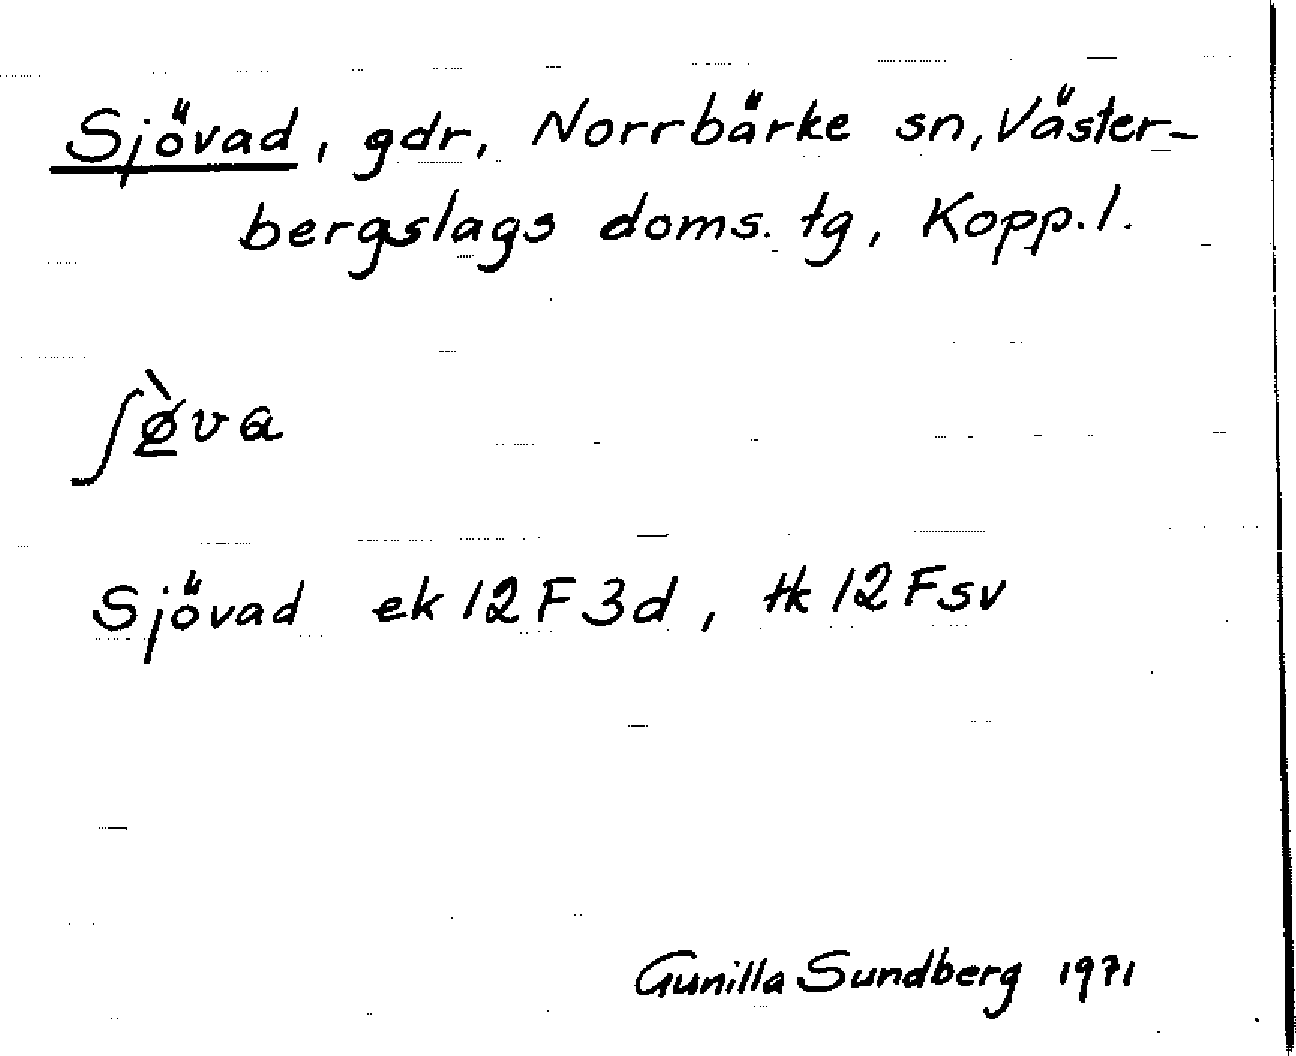 Sjövad, gdr, Norrbärke sn, Väster-
bergslags doms. tg, Kopp. l.
ʃø̠̀va
Sjövad ek 12 F 3d, tk 12 F sv
Gunilla Sundberg 1971